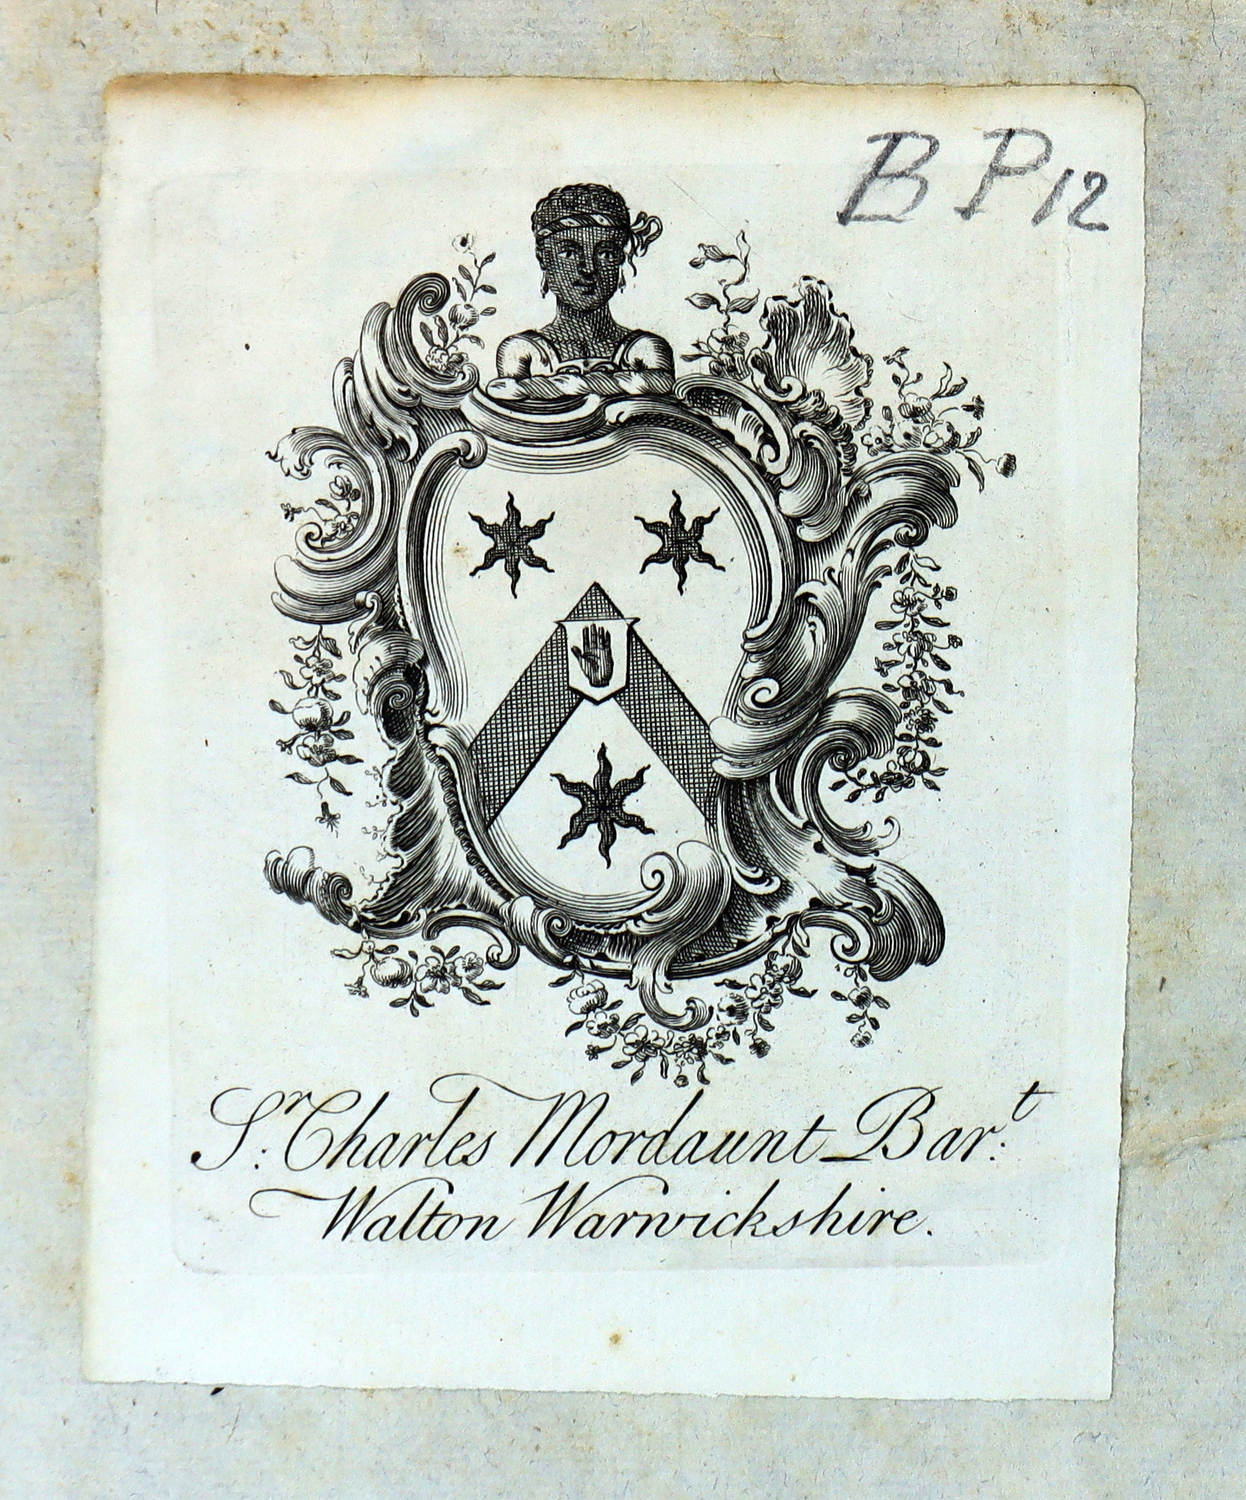 B P 12
Sr: Charles Mordaunt Bar:t
Walton Warwickshire.